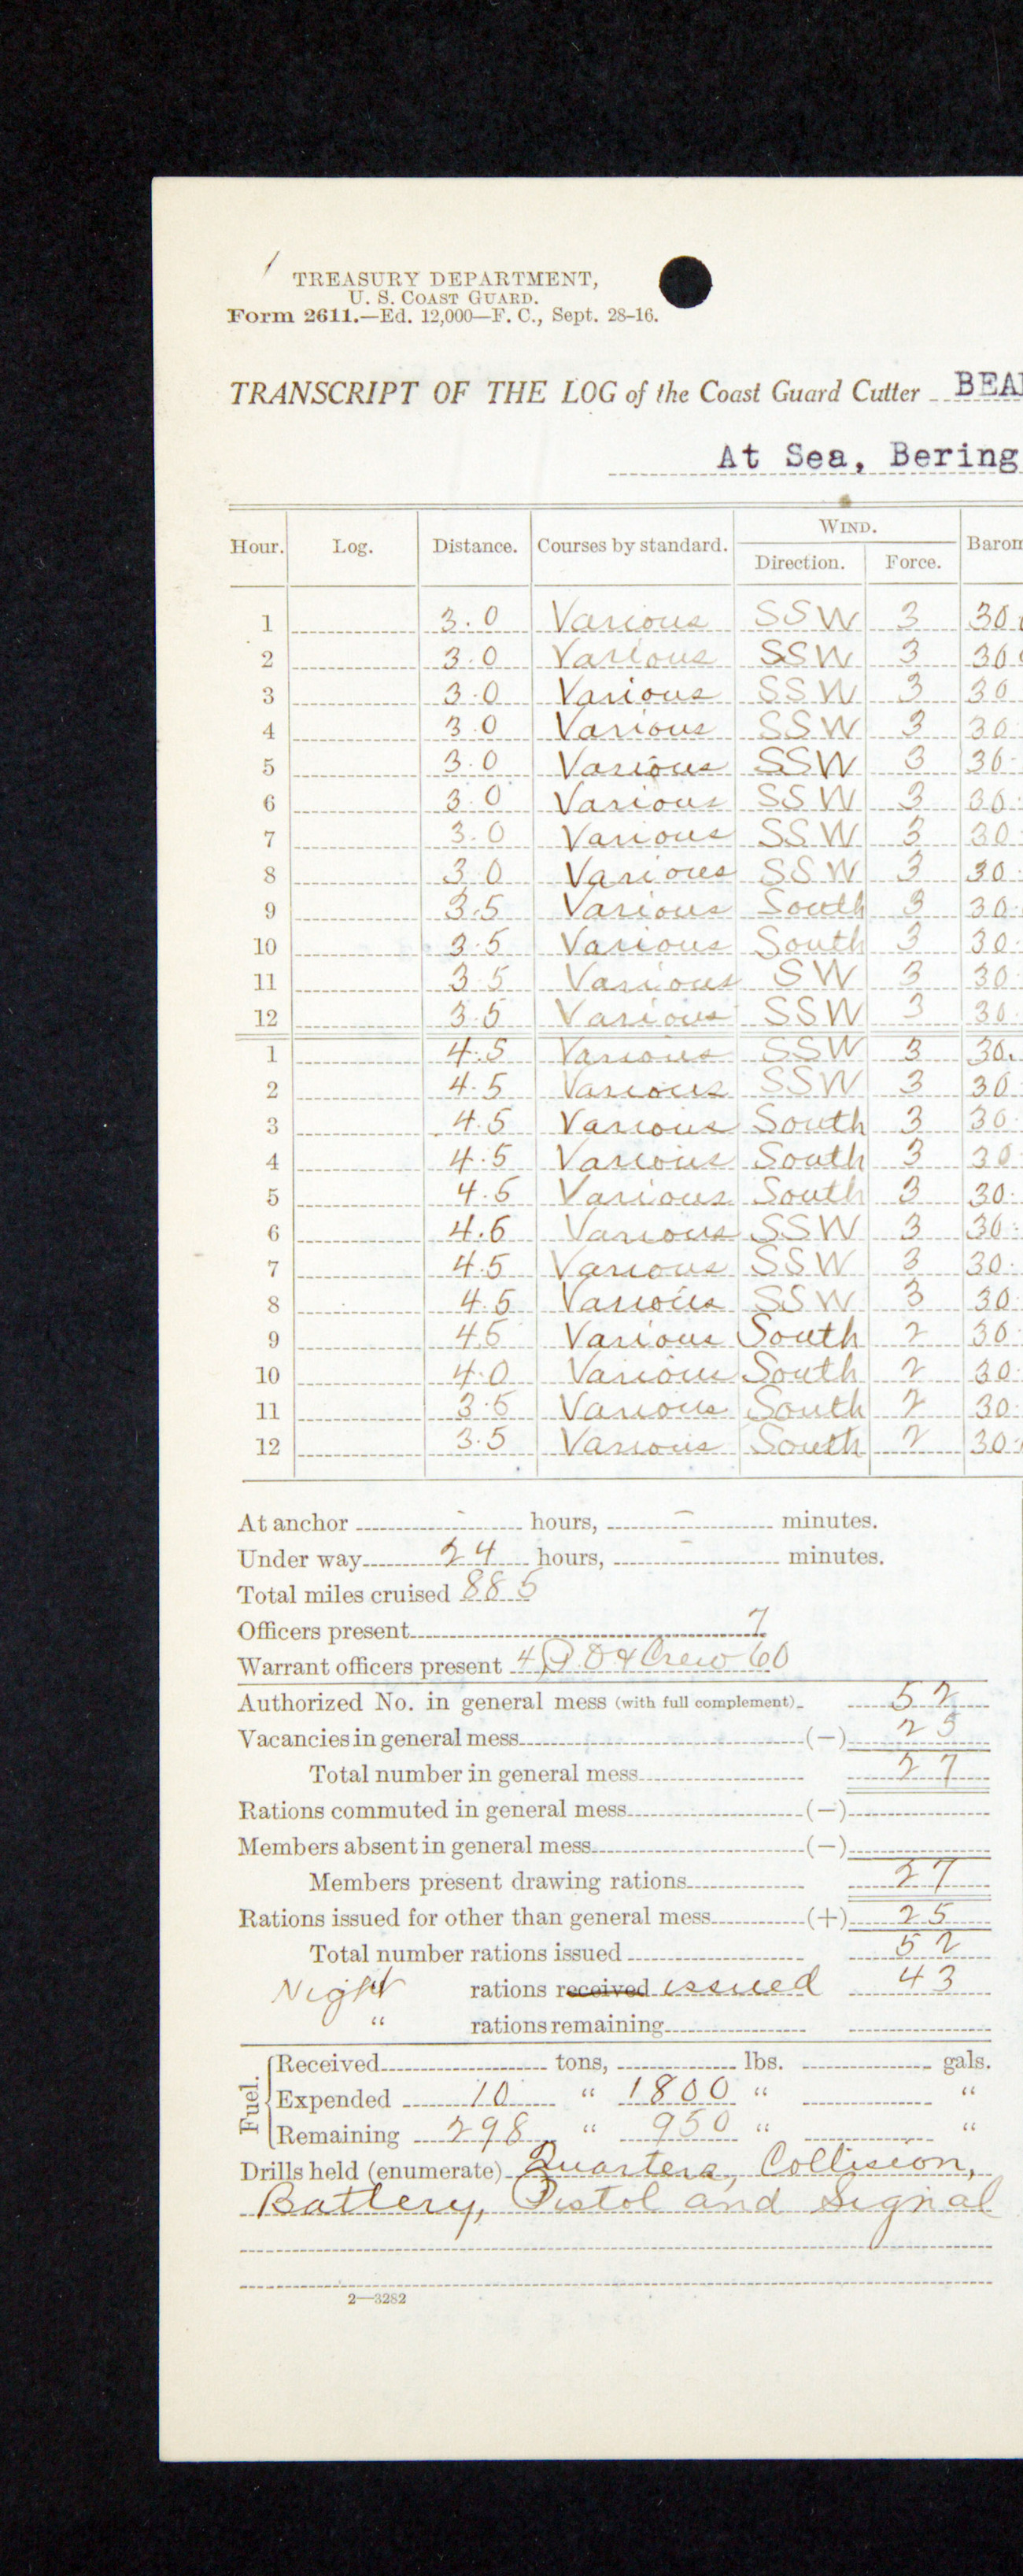 TREASURY DEPARTMENT,
U. S. COAST GUARD.
Form 2611.—Ed. 12,000—F. C., Sept. 28-16.
TRANSCRIPT OF THE LOG of the Coast Guard Cutter BEA
At Sea, Bering
Hour. Log. Distance. Courses by standard. WIND. Direction. Force. Barom
1 3.0 Various SSW 3 30
2 3.0 Various SSW 3 30
3 3.0 Various SSW 3 30
4 3.0 Various SSW 3 30
5 3.0 Various SSW 3 30.
6 3.0 Various SSW 3 30.
7 3.0 Various SSW 3 30
8 3.0 Various SSW 3 30.
9 3.5 Various South 3 30.
10 3.5 Various South 3 30.
11 3.5 Various SW 3 30.
12 3.5 Various SSW 3 30.
1 4.5 Various SSW 3 30.
2 4.5 Various SSW 3 30
3 4.5 Various South 3 30.
4 4.5 Various South 3 30
5 4.5 Various South 3 30.
6 4.5 Various SSW 3 30.
7 4.5 Various SSW 3 30.
8 4.5 Various SSW 3 30
9 4.5 Various South 2 30.
10 4.0 Various South 2 30.
11 3.5 Various South 2 30.
12 3.5 Various South 2 30.
At anchor - hours, - minutes.
Under way 24 hours, - minutes.
Total miles cruised 88.5
Officers present 7
Warrant officers present 4 P.O & Crew 60
Authorized No. in general mess (with full complement) 52
Vacancies in general mess (—) 25
Total number in general mess 27
Rations commuted in general mess (—)
Members absent in general mess (—)
Members present drawing rations 27
Rations issued for other than general mess (+) 25
Total number rations issued 52
Night rations received issued 43
" rations remaining
Fuel. Received tons, lbs. gals.
Expended 10 " 1800 " "
Remaining 298 " 950 " "
Drills held (enumerate) Quarters, Collision,
Battery, Pistol and Signal
2—3282